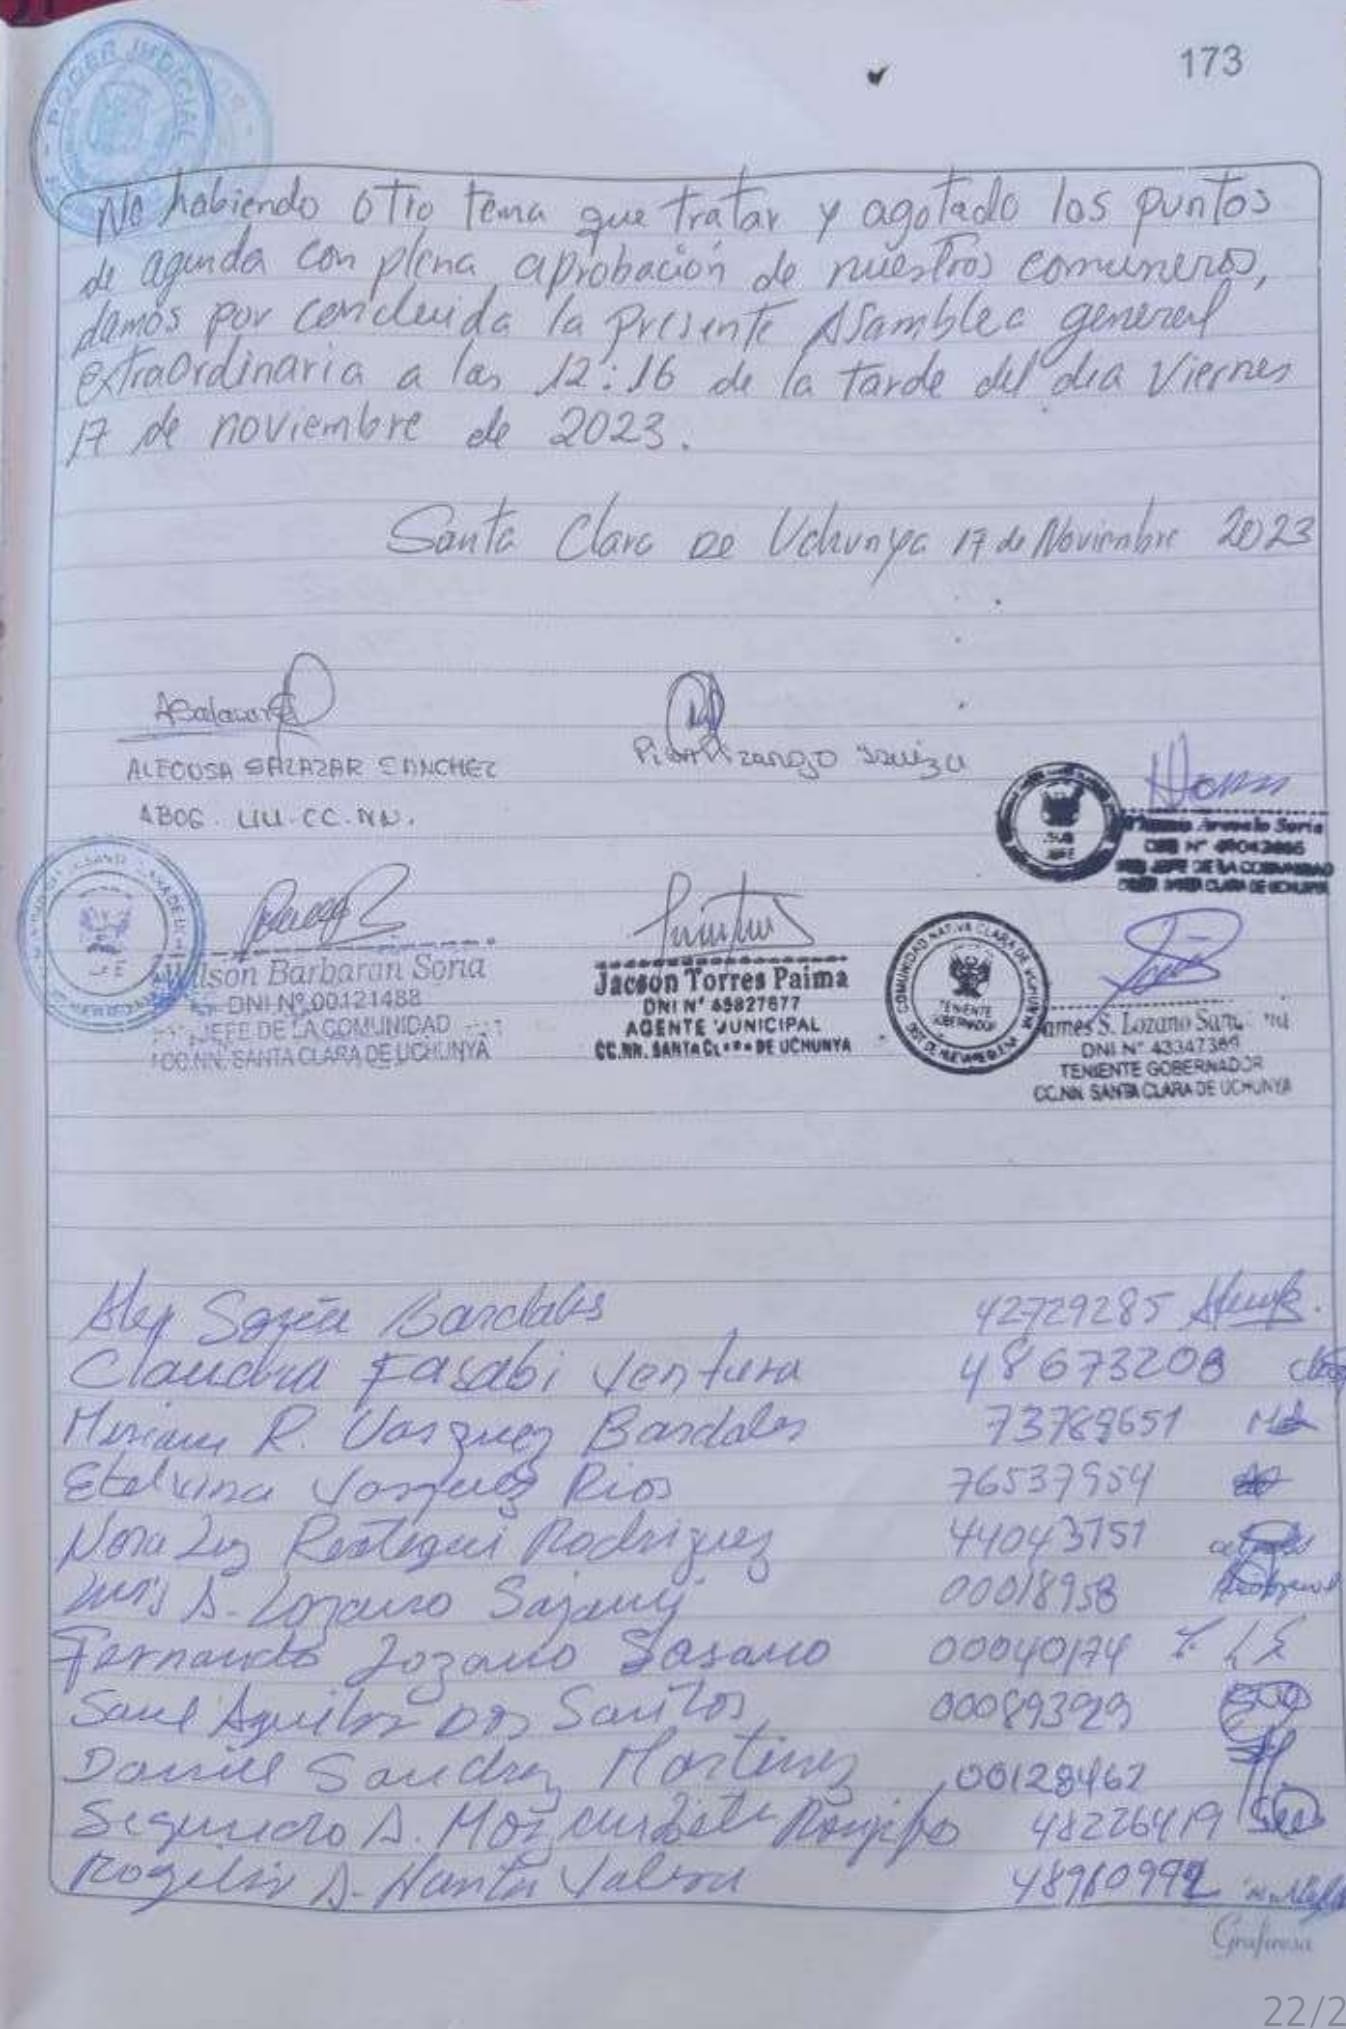 173
PODER JUDICIAL
No habiendo otro tema que tratar y agotado los puntos
de agenda con plena aprobación de nuestros comuneros,
damos por concluida la presente Asamblea general
extraordinaria a las 12:16 de la tarde del dia Viernes
17 de noviembre de 2023.
Santa Clara De Uchunya 17 de Noviembre 2023
SALAZAR SANCHEZ
ABOG. CC.NN.
Soria
DNI N°
JEFE DE LA COMUNIDAD
SANTA CLARA DE UCHUNYA
Wilson Barbaran Soria
DNI Nº 00121488
JEFE DE LA COMUNIDAD
CC.NN. SANTA CLARA DE UCHUNYA
Jacson Torres Paima
DNI N°
AGENTE MUNICIPAL
CC.NN. SANTA CLARA DE UCHUNYA
COMUNIDAD NATIVA CLARA DE UCHUNYA
TENIENTE
GOBERNADOR
James S. Lozano
DNI N° 43347389
TENIENTE GOBERNADOR
CC.NN. SANTA CLARA DE UCHUNYA
Soria Bardales 42729285
Claudia Fasabi Ventura 48673208
Miriam R. Vasquez Bardales 73789651
Etelvina Vasquez Rios 76537954
Nora Luz Reategui Rodriguez 44043751
Luis A. Lozano 00018958
Fernando Lozano 00040174
Saul Aguilar Dos Santos 00089329
Daniel Sanchez Martinez 00128462
Segundo A. 48226419
48960992
Grafinosa
22/2